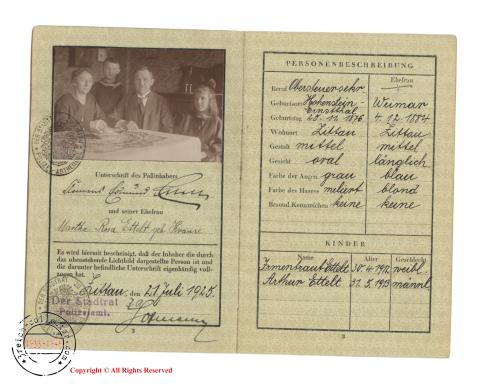 Unterschrift des Paßinhabers
und seiner Ehefrau
Martha Rosa Ettelt geb Krause
Es wird hiermit bescheinigt, daß der Inhaber die durch
das obenstehende Lichtbild dargestellte Person ist und
die darunter befindliche Unterschrift eigenhändig voll-
zogen hat.
Zittau, den 21. Juli 1925.
Der Stadtrat
Polizeiamt.
PERSONENBESCHREIBUNG
Ehefrau
Beruf Obersteuersekr.
Geburtsort Hohenstein-Ernstthal Weimar
Geburtstag 25. 12. 1876 4. 12. 1884
Wohnort Zittau Zittau
Gestalt mittel mittel
Gesicht oval länglich
Farbe der Augen grau blau
Farbe des Haares meliert blond
Besond. Kennzeichen keine keine
KINDER
Name Alter Geschlecht
Irmentraut Ettelt 30.4.1912 weibl
Arthur Ettelt 31.5.1913 männl.
3
Copyright © All Rights Reserved